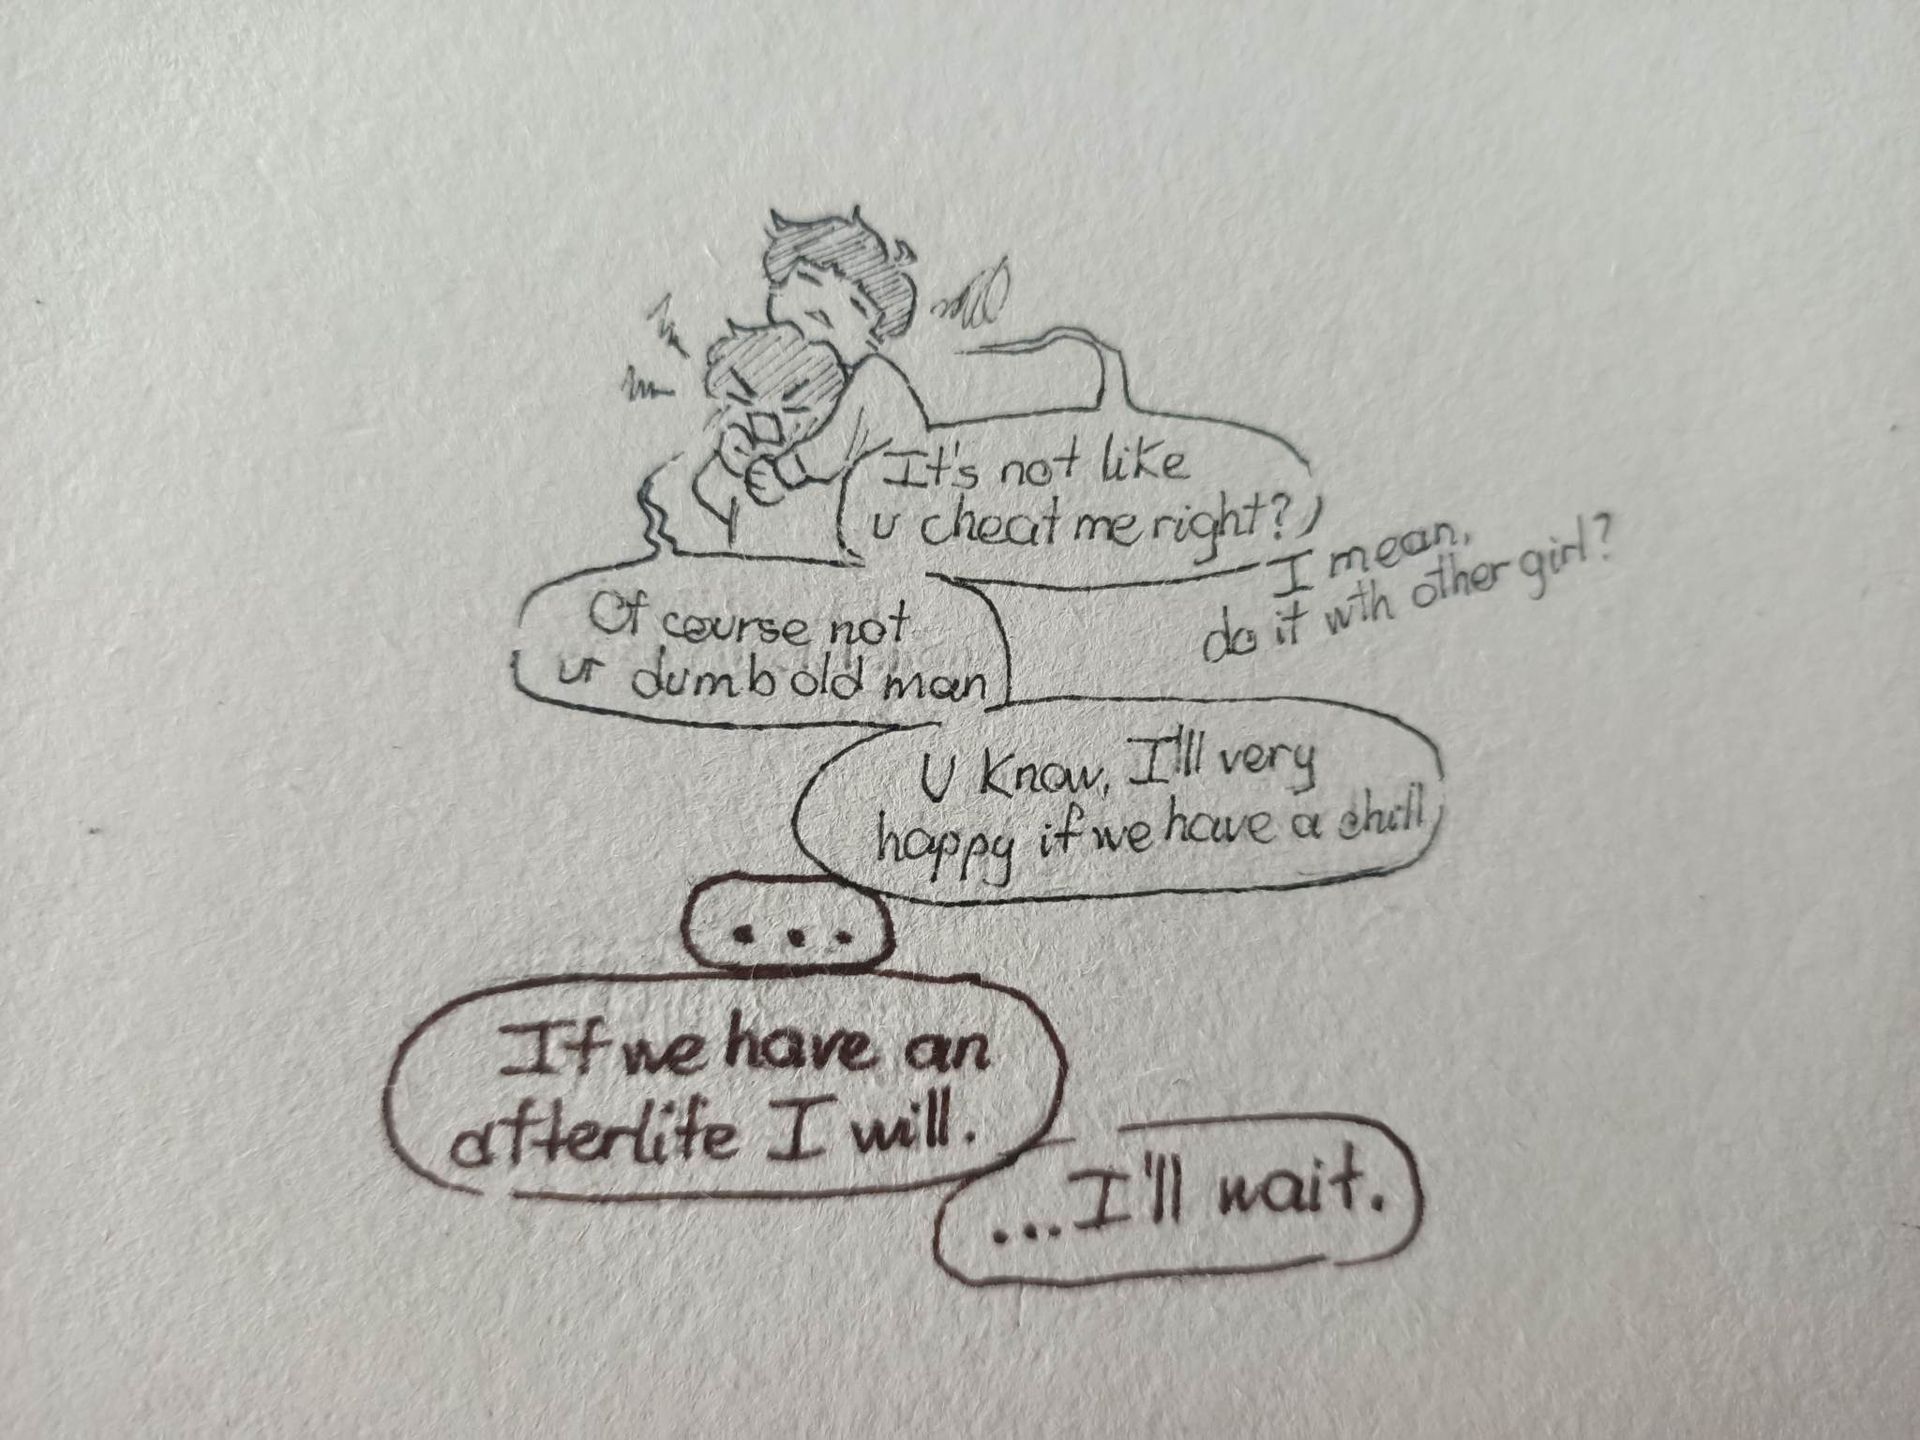 It's not like
u cheat me right?
I mean,
do it wth other girl?
Of course not
ur dumb old man
U know, I'll very
happy if we have a
...
If we have an
afterlife I will.
...I'll wait.